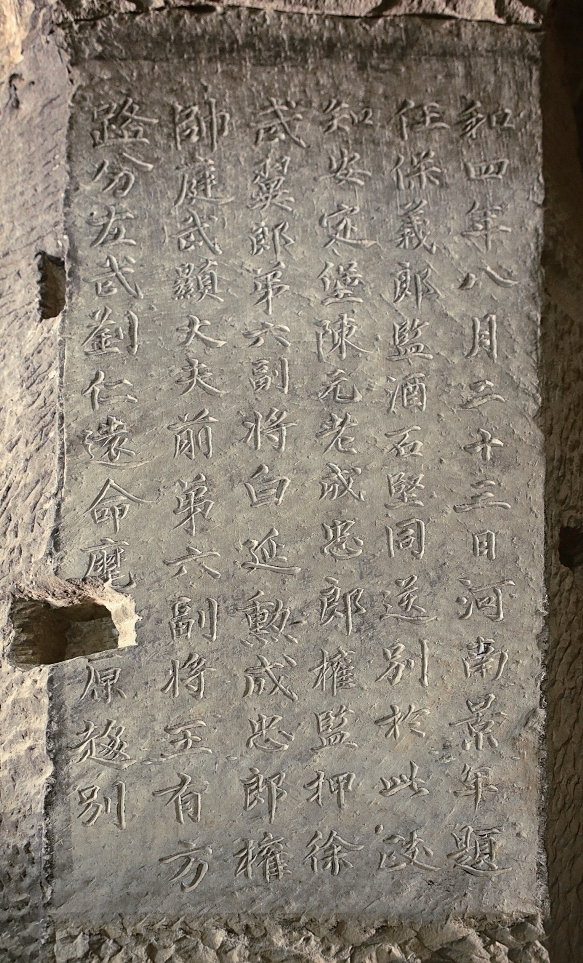 路分左武劉仁遠命原趍別
帥庭武顯大夫前第六副将王有方
武翼郎第六副将白延勳成忠郎權
知安定堡陳元老成忠郎權監押徐
任保義郎監酒石堅同送別於此政
和四年八月二十三日河南景年題